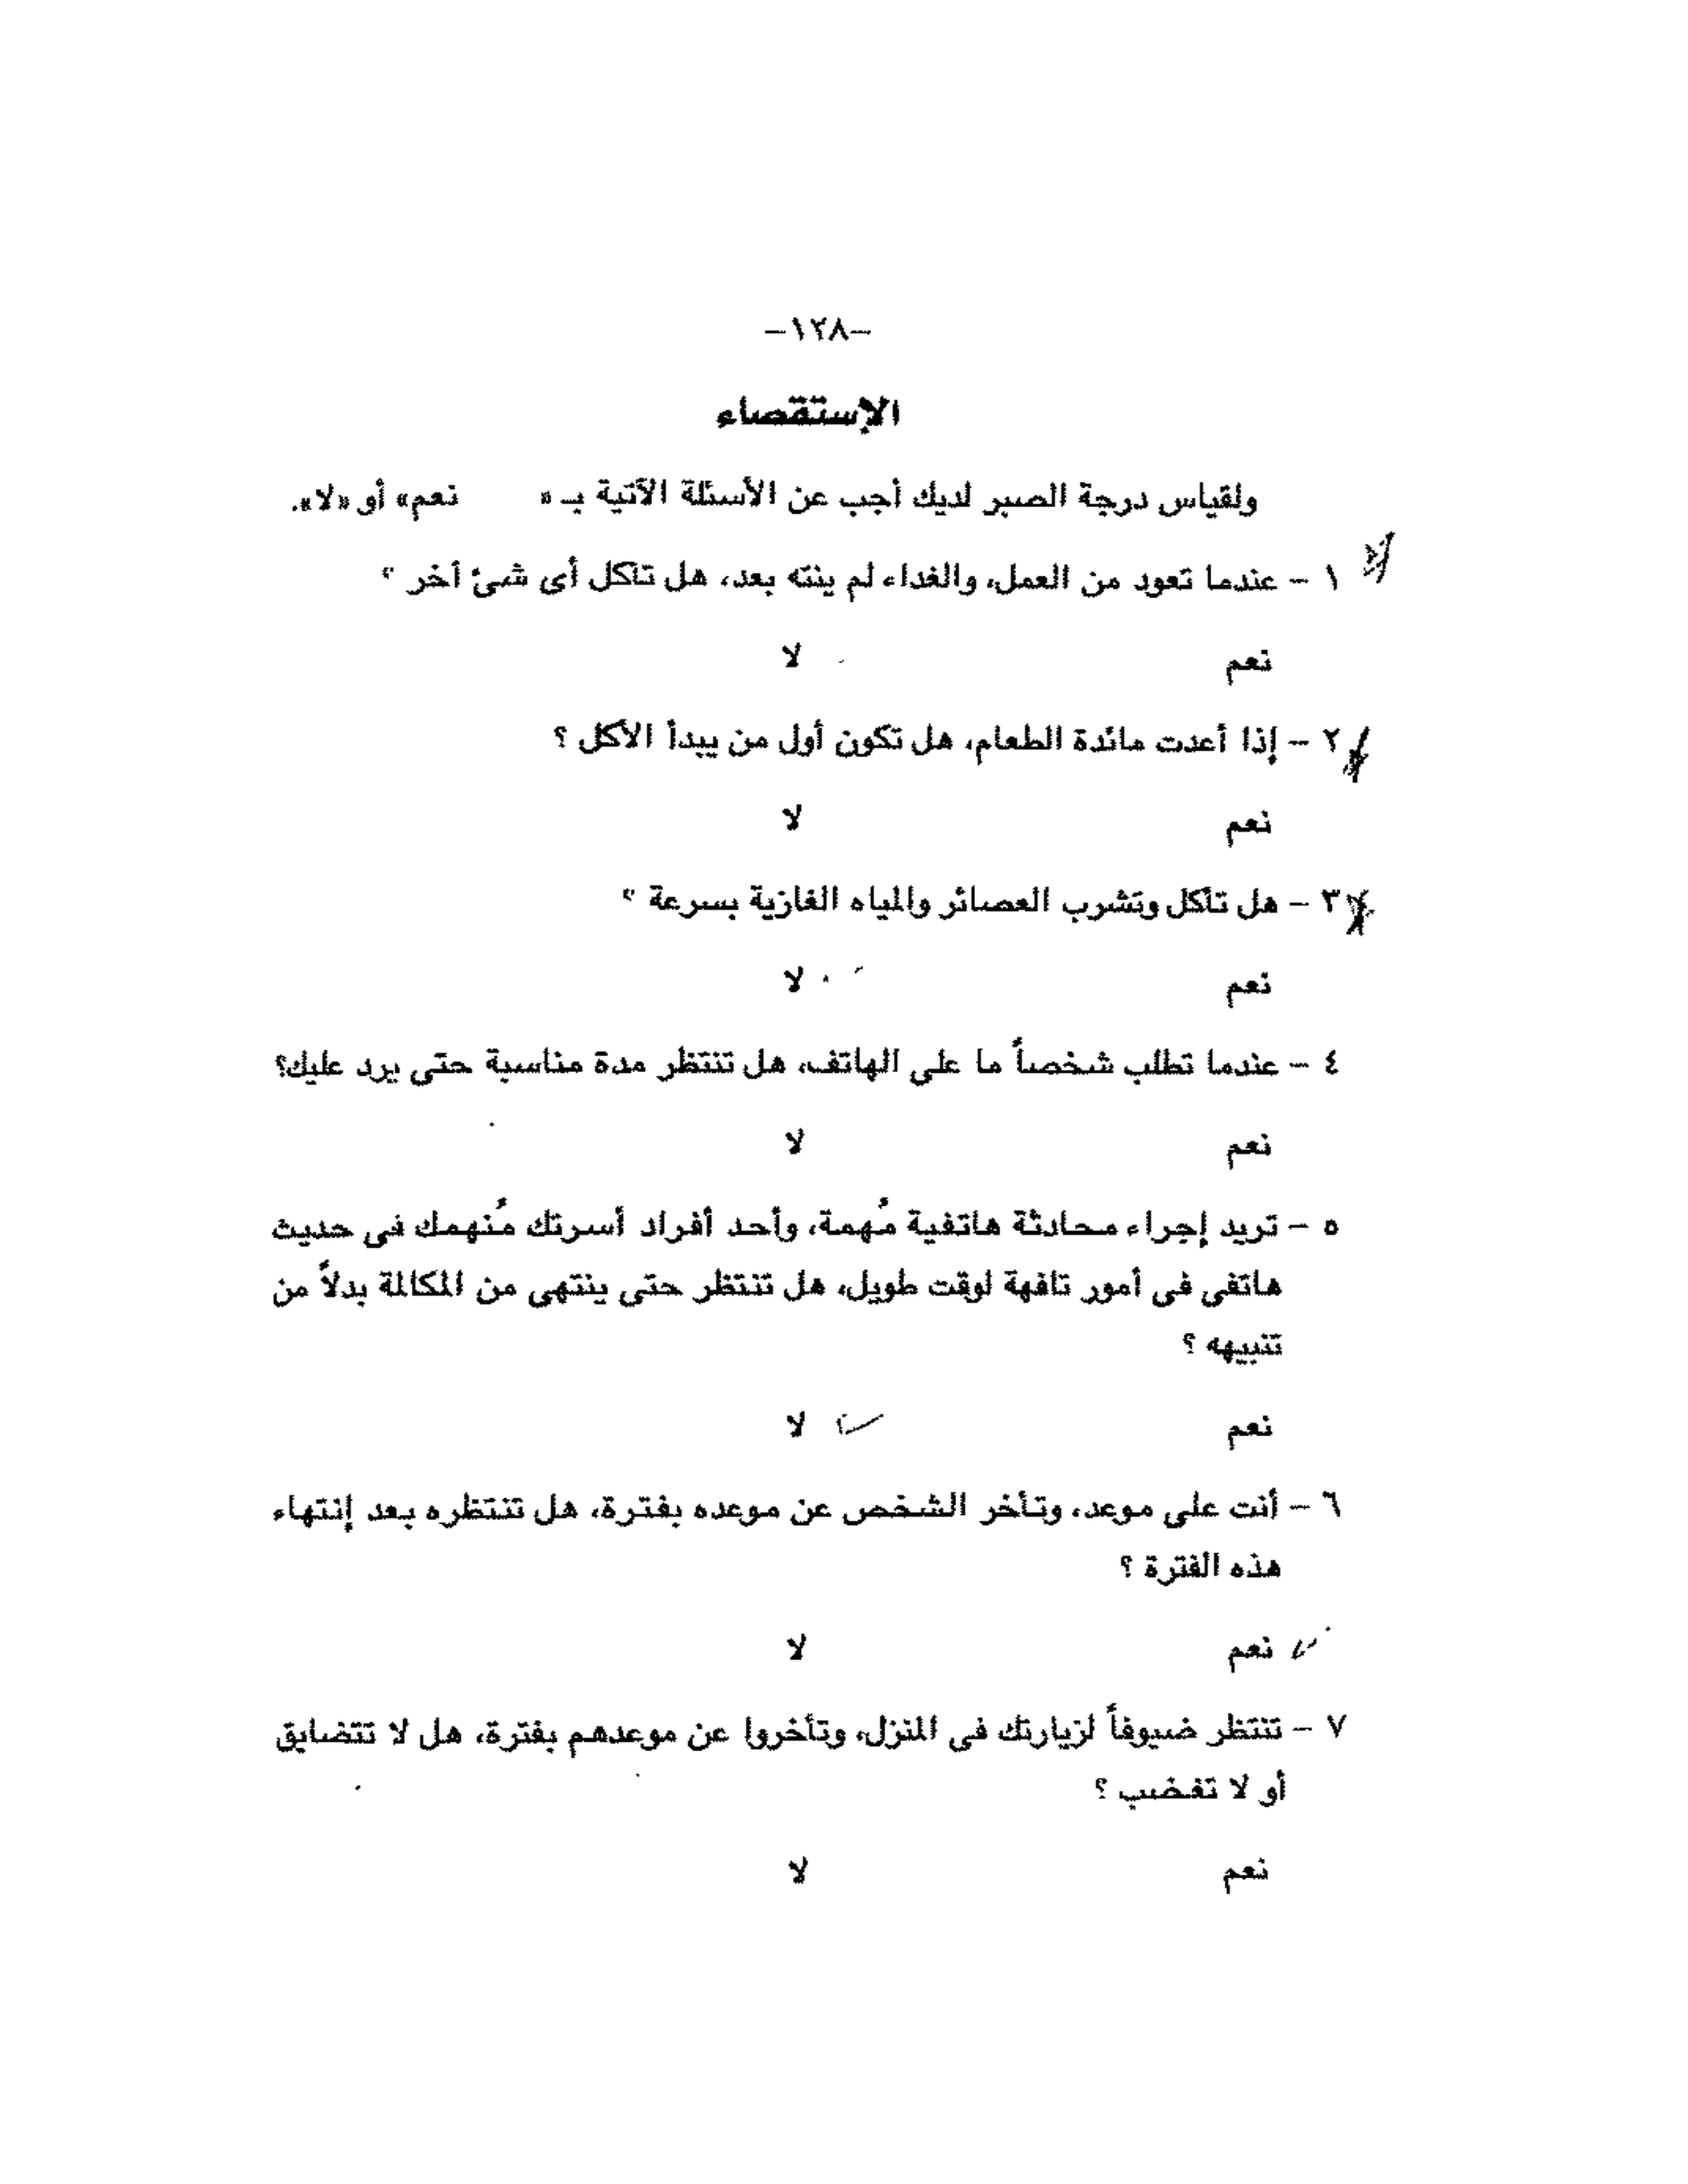 -١٢٨-
الإستقصاء
ولقياس درجة الصبر لديك أجب عن الأسئلة الآتية بـ « نعم» أو «لا».
١ - عندما تعود من العمل، والغداء لم ينته بعد، هل تأكل أى شئ أخر ؟
نعم لا
٢ - إذا أعدت مائدة الطعام، هل تكون أول من يبدأ الأكل ؟
نعم لا
٣ - هل تأكل وتشرب العصائر والمياه الغازية بسرعة ؟
نعم لا
٤ - عندما تطلب شخصاً ما على الهاتف، هل تنتظر مدة مناسبة حتى يرد عليك؟
نعم لا
٥ - تريد إجراء محادثة هاتفية مُهمة، وأحد أفراد أسرتك مُنهمك فى حديث
هاتفى فى أمور تافهة لوقت طويل، هل تنتظر حتى ينتهى من المكالمة بدلاً من
تنبيهه ؟
نعم لا
٦ - أنت على موعد، وتأخر الشخص عن موعده بفترة، هل تنتظره بعد إنتهاء
هذه الفترة ؟
نعم لا
٧ - تنتظر ضيوفاً لزيارتك فى المنزل، وتأخروا عن موعدهم بفترة، هل لا تتضايق
أو لا تغضب ؟
نعم لا